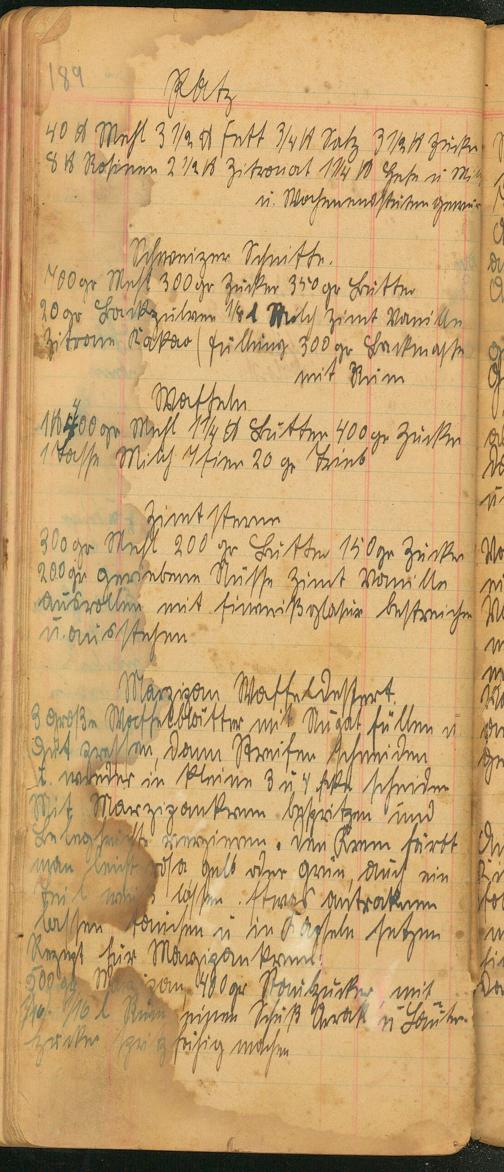 189
Platz
40 ℔ Mehl 3 1/2 ℔ Fett 3/4 ℔ Salz 3 1/2 ℔ Zucker
8 ℔ Rosinen 2 1/2 ℔ Zitronat 1 1/4 ℔ Hefe u Mil
u. Wochenendstutengewür
Schweizer Schnitte.
700 gr Mehl 300 gr Zucker 350 gr Butter
20 gr Backpulver 1/8 l Milch Zimt Vanille
Zitrone Kakao (Füllung 300 gr Backmasse
mit Rum
Waffeln
400 gr Mehl 1 1/4 ℔ Butter 400 gr Zucker
1 Tasse Milch 7 Eier 20 gr Trieb
Zimtsterne
300 gr Mehl 200 gr Butter 150 gr Zucker
200 gr geriebene Nüsse Zimt Vanille
ausrollen mit Eiweißglasur bestreichen
u. ausstechen
Marzipan Waffeldessert
3 große Waffelblätter mit Nugat füllen u
gut pressen, dann Streifen schneiden
u. wieder in kleine 3 u 4 Ecke schneiden
Mit Marzipankrem bespritzen und
verzieren. den Krem färbt
man leicht rosa gelb oder grün, auch ein
Teil weiß lassen. Etwas antroknen
lassen tauchen u in Kapseln setzen
Rezept für Marzipankrem:
500 gr Marzipan, 400 gr Staubzucker mit
1/10 l Rum einen Schuß Arrak u Läuter-
zucker spritzfähig machen